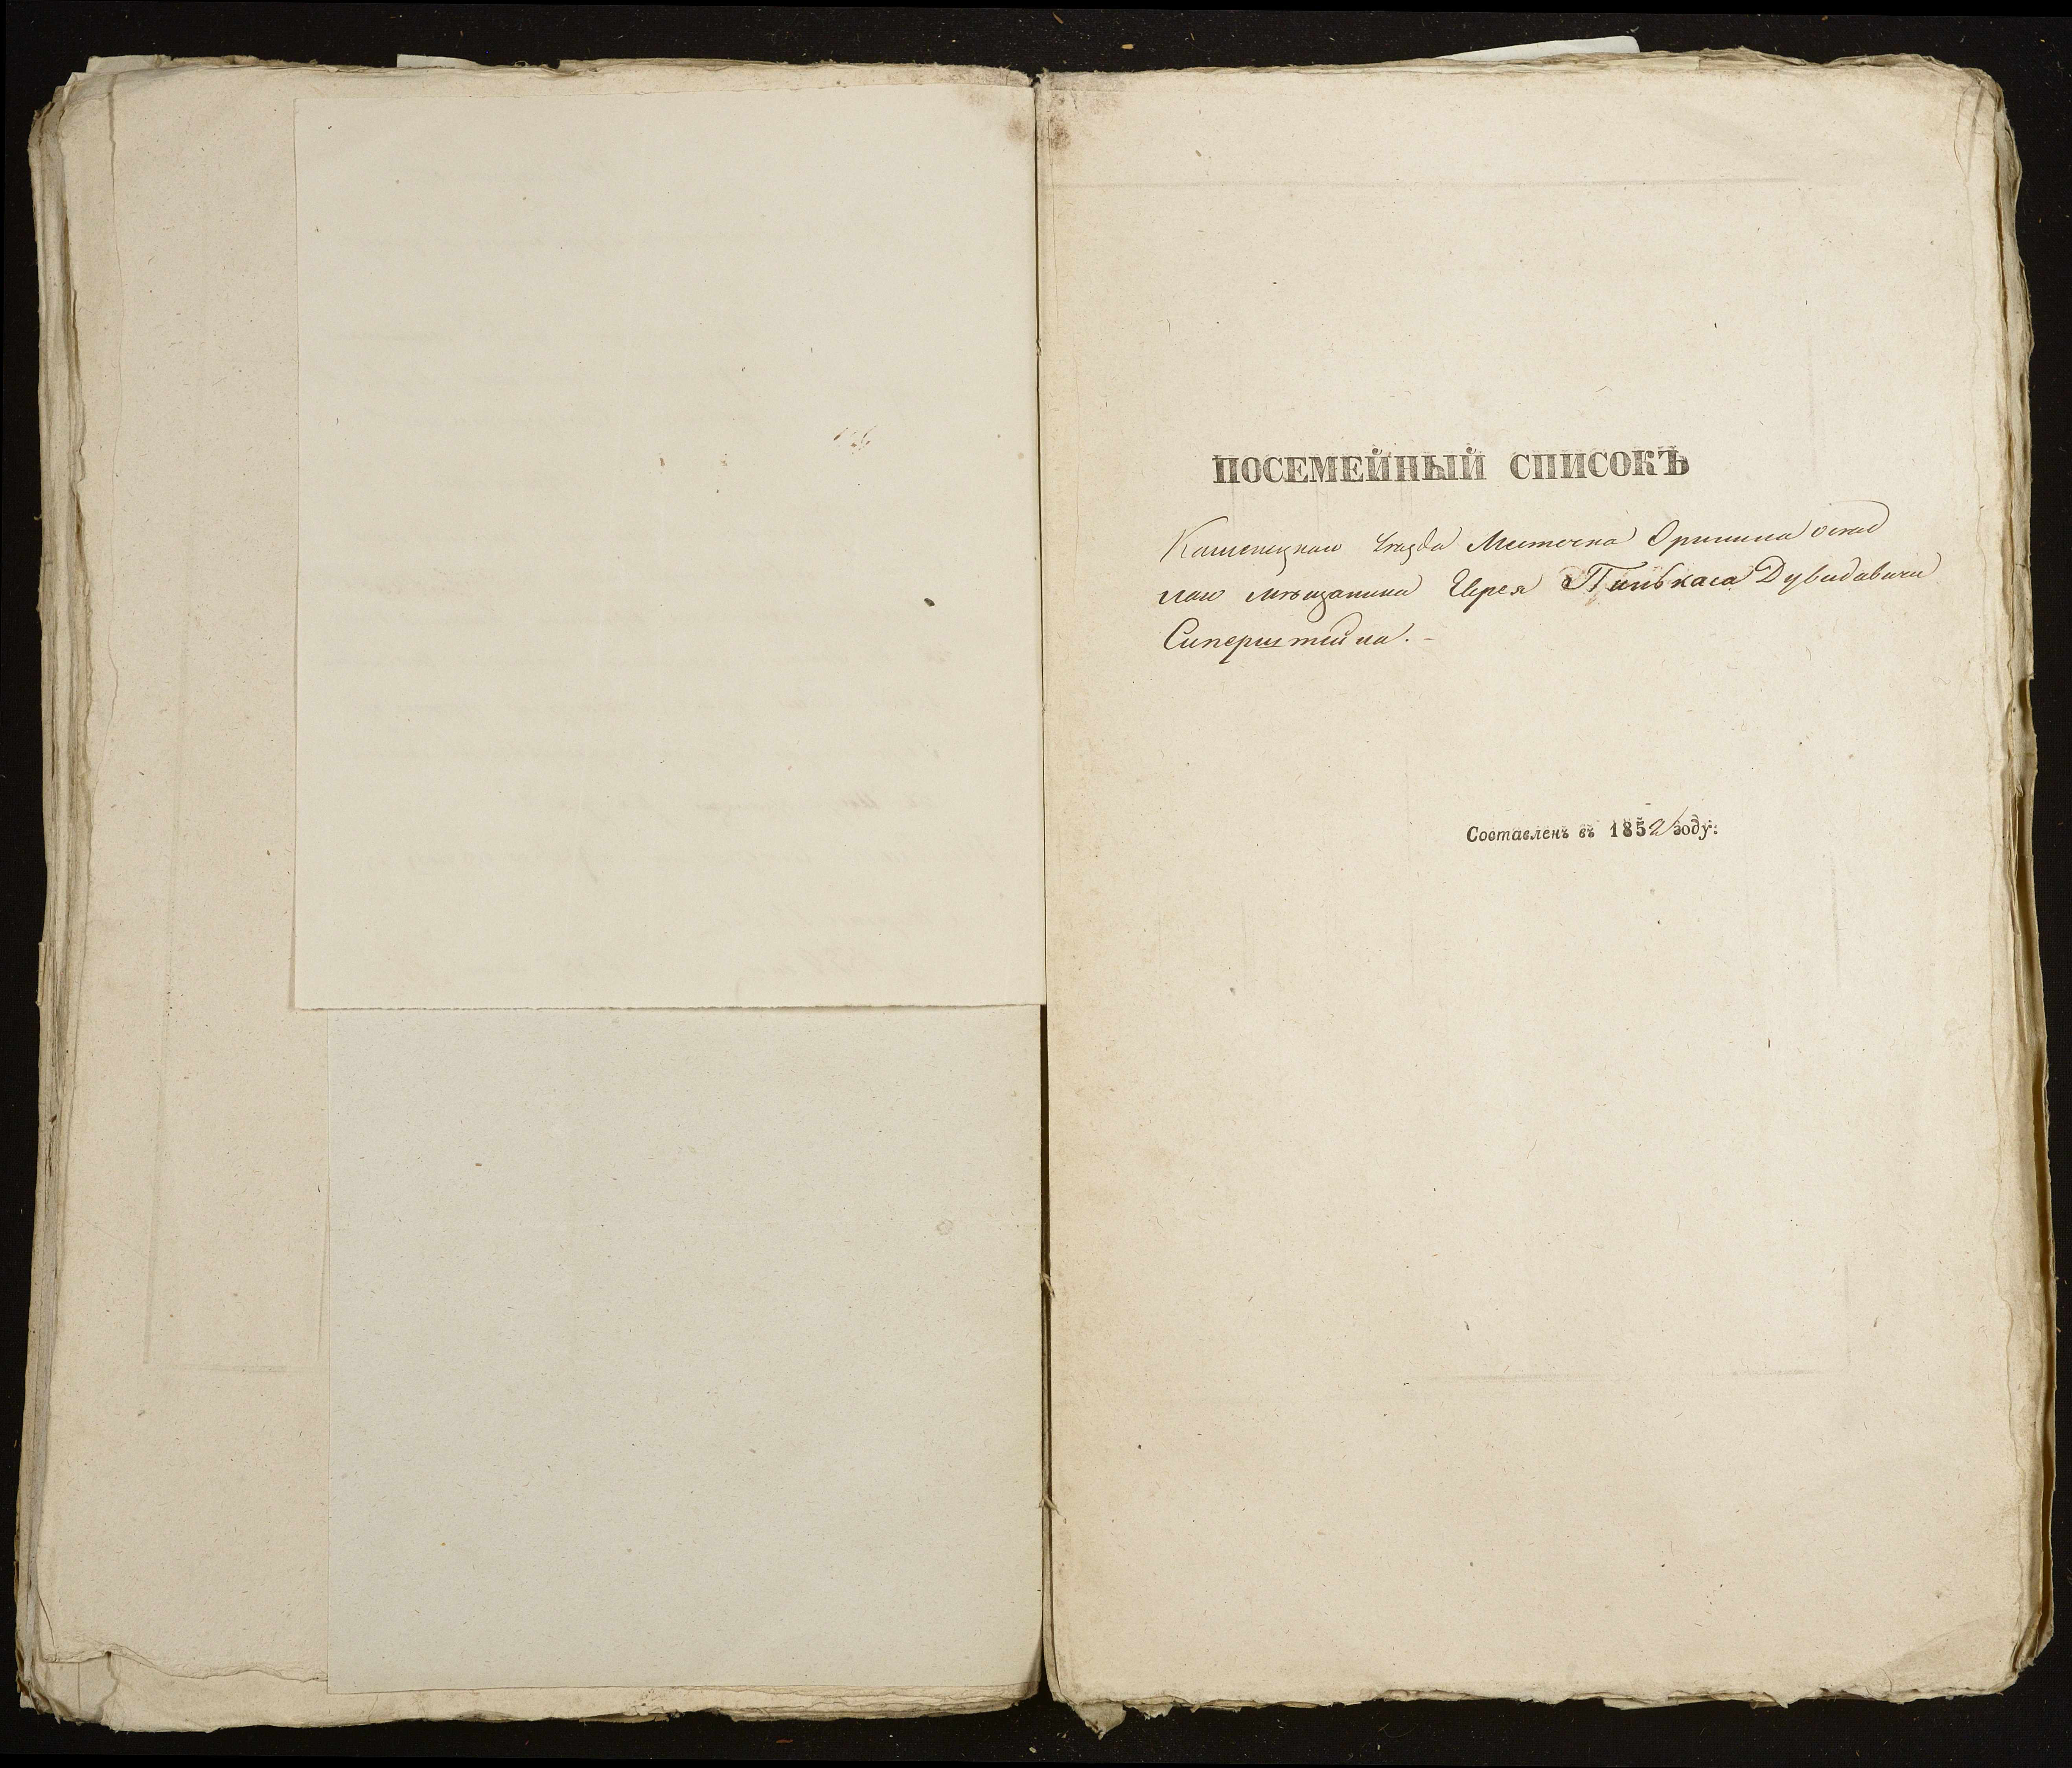 ПОСЕМЕЙНЫЙ СПИСОКЪ
Каменецкаго Уезда Местечка Оринина осед
лаго мѣщанина Еврея Пинькаса Дувидовича
Сиперштейна. –
Составленъ въ 1852 году.